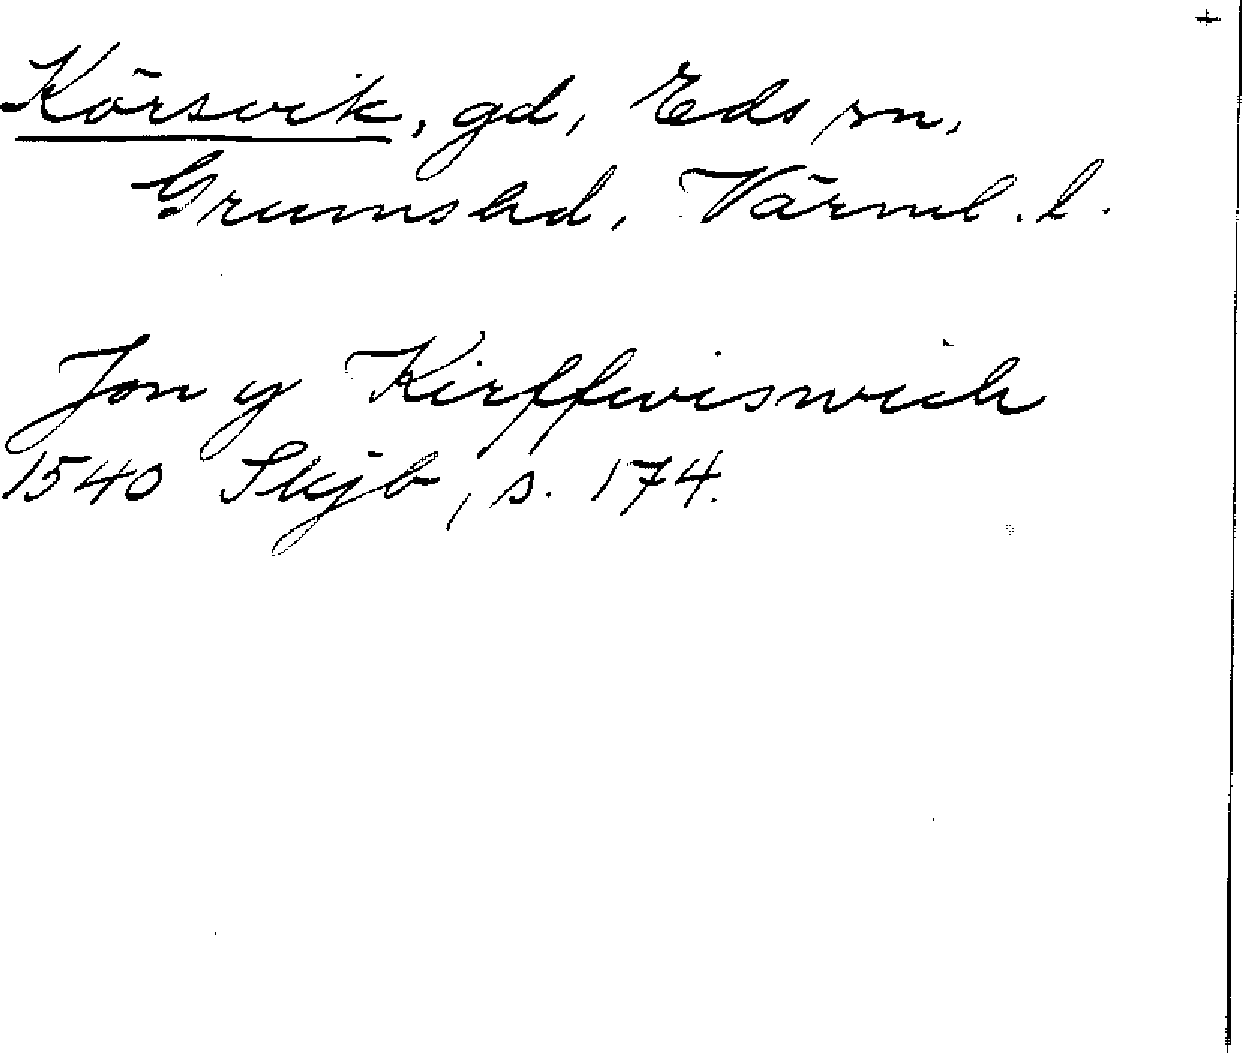 +
Körsvik, gd, Eds sn,
Grums hd, Värml. l.
Jon y Kirffwiswich
1540 Skjb, s. 174.